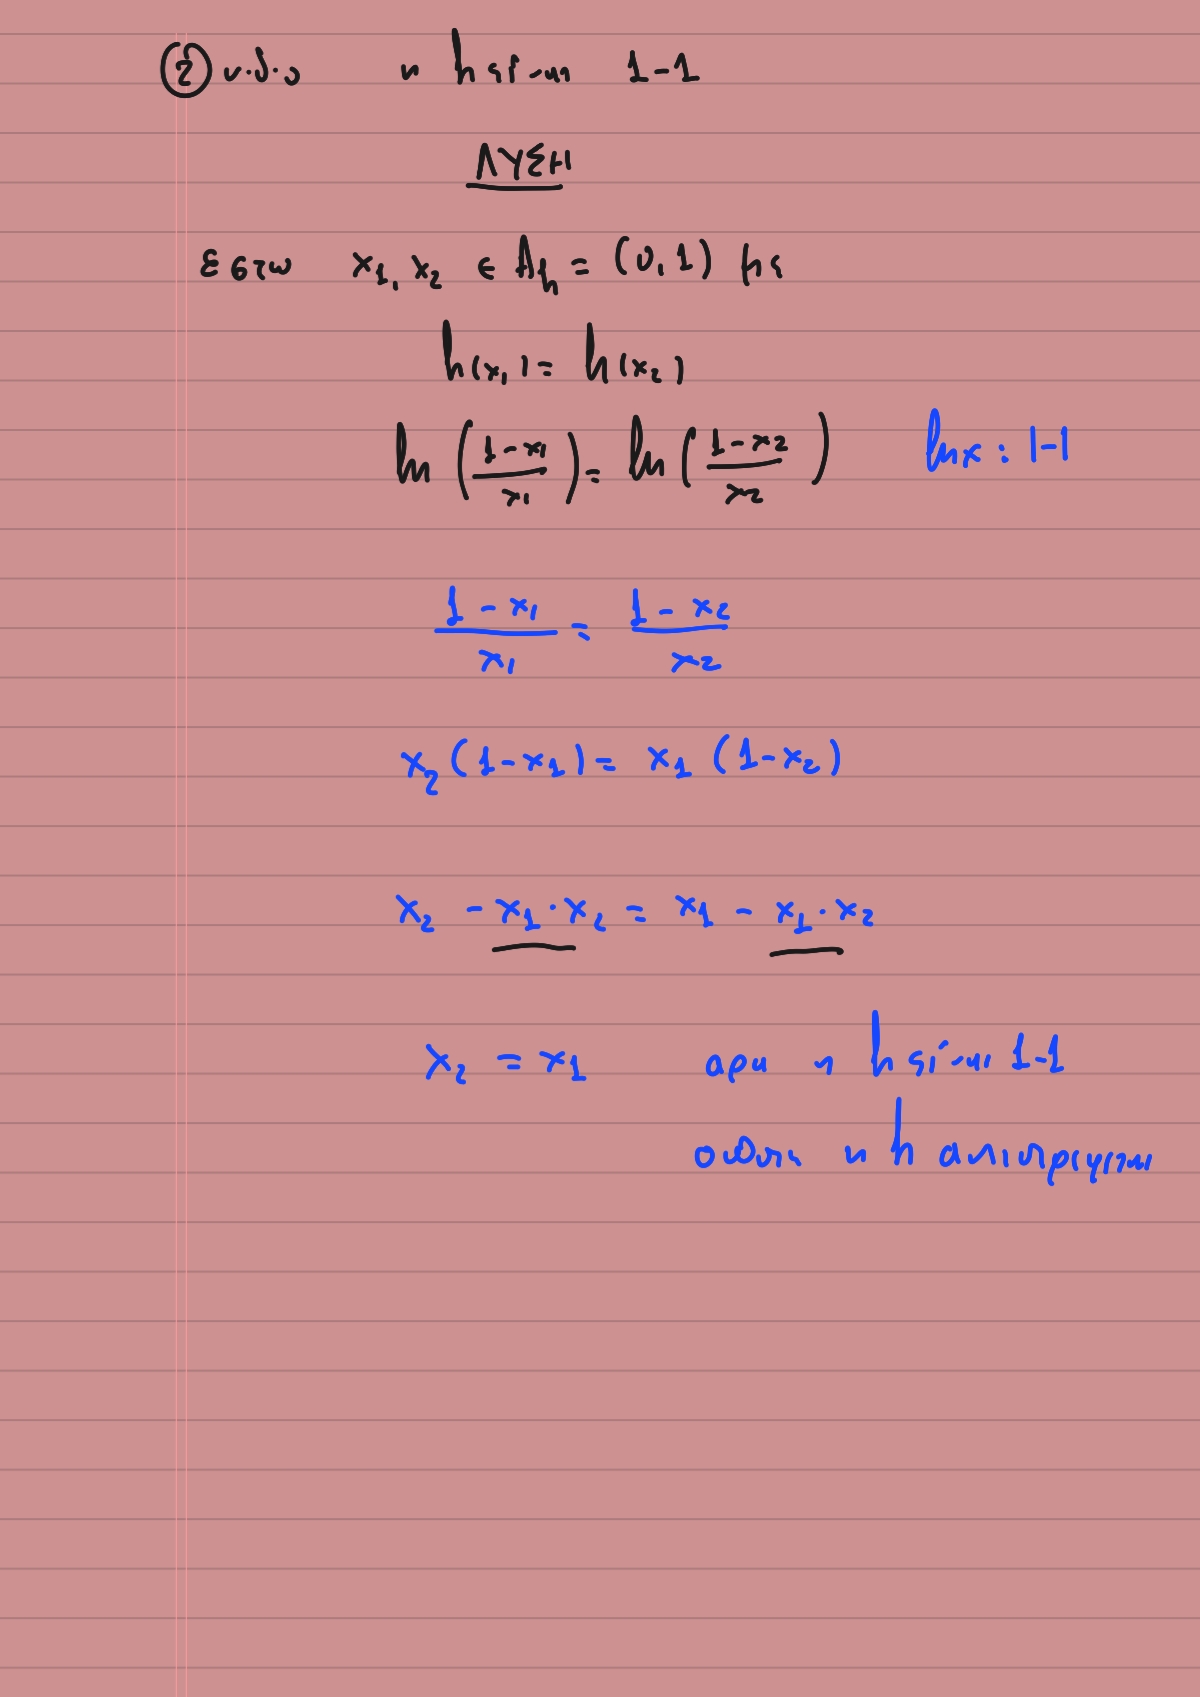 ② ν.δ.ο η h είναι 1-1
ΛΥΣΗ
Εστω x₁, x₂ ∈ A_h = (0,1) με
h(x₁) = h(x₂)
ln((1-x₁)/x₁) = ln((1-x₂)/x₂) lnx : 1-1
(1-x₁)/x₁ = (1-x₂)/x₂
x₂(1-x₁) = x₁(1-x₂)
x₂ - x₁·x₂ = x₁ - x₁·x₂
x₂ = x₁ αρα η h είναι 1-1
οποτε η h αντιστρεφεται